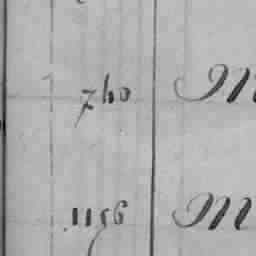 740 M
1156 M